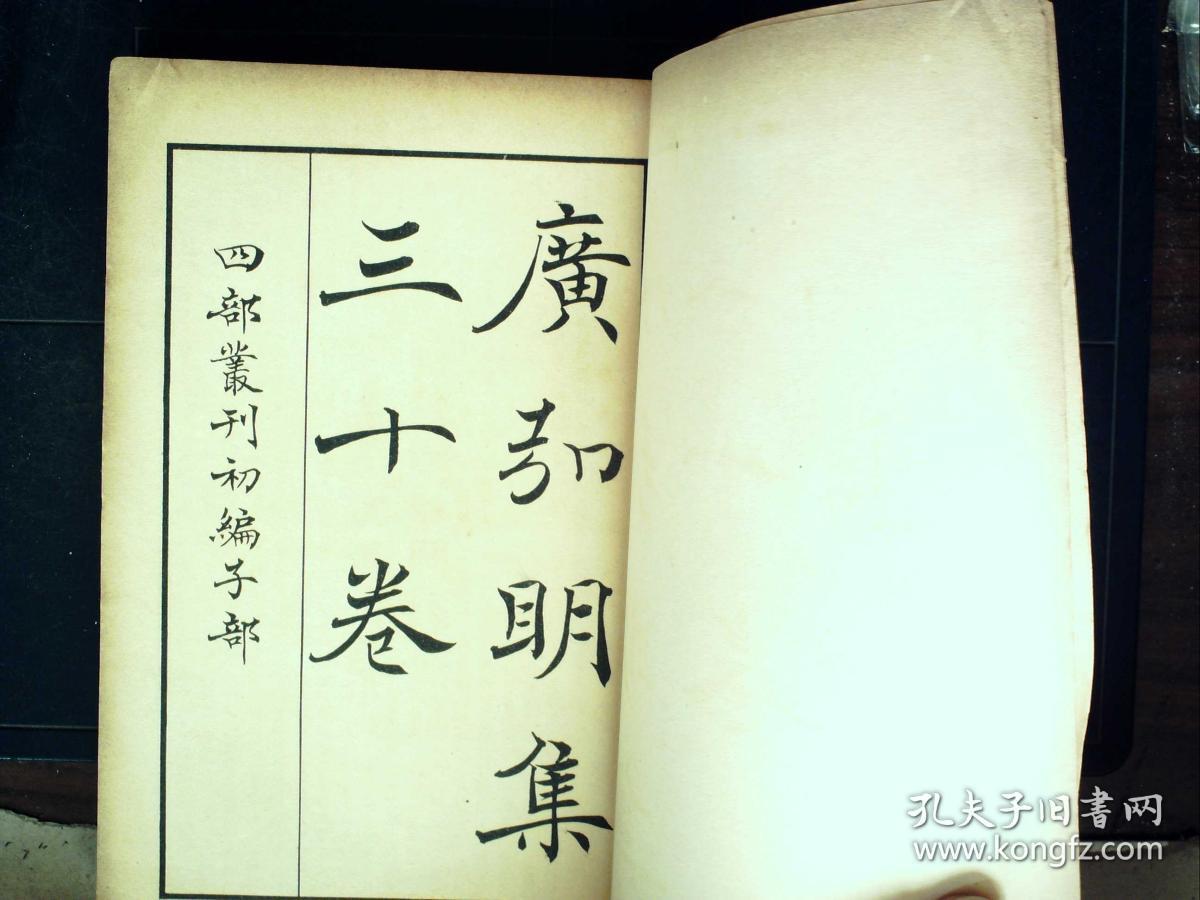 廣弘明集
三十卷
四部叢刊初編子部
孔夫子旧書网
www.kongfz.com